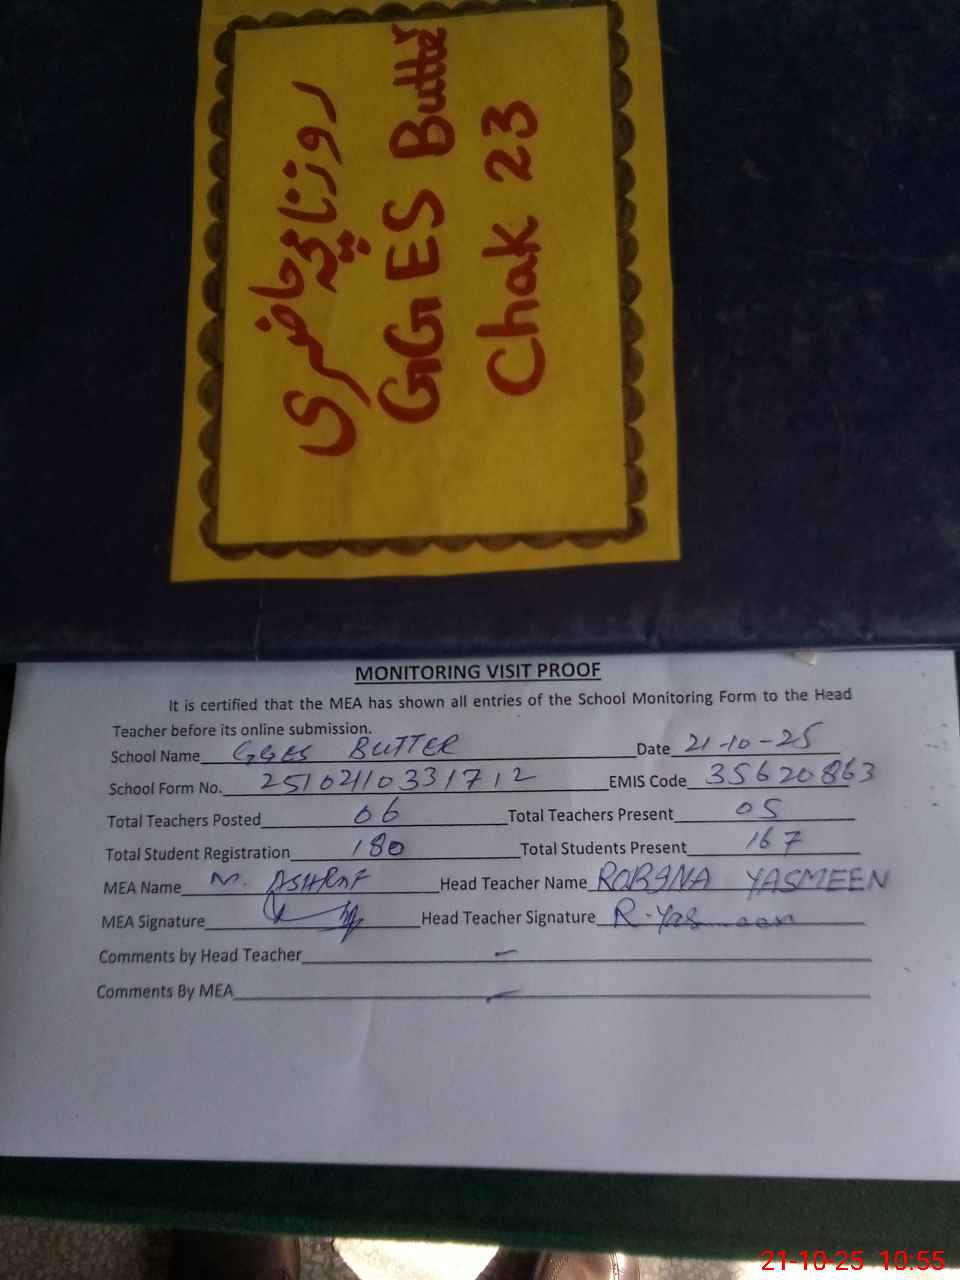 روزنامچہ حاضری
GGES Butter
Chak 23
MONITORING VISIT PROOF
It is certified that the MEA has shown all entries of the School Monitoring Form to the Head
Teacher before its online submission.
School Name GGES BUTTER Date 21-10-25
School Form No. 25102110331712 EMIS Code 35620863
Total Teachers Posted 06 Total Teachers Present 05
Total Student Registration 180 Total Students Present 167
MEA Name M. ASHRAF Head Teacher Name ROBINA YASMEEN
MEA Signature Head Teacher Signature R-Yasmeen
Comments by Head Teacher –
Comments By MEA –
21-10-25 10:55